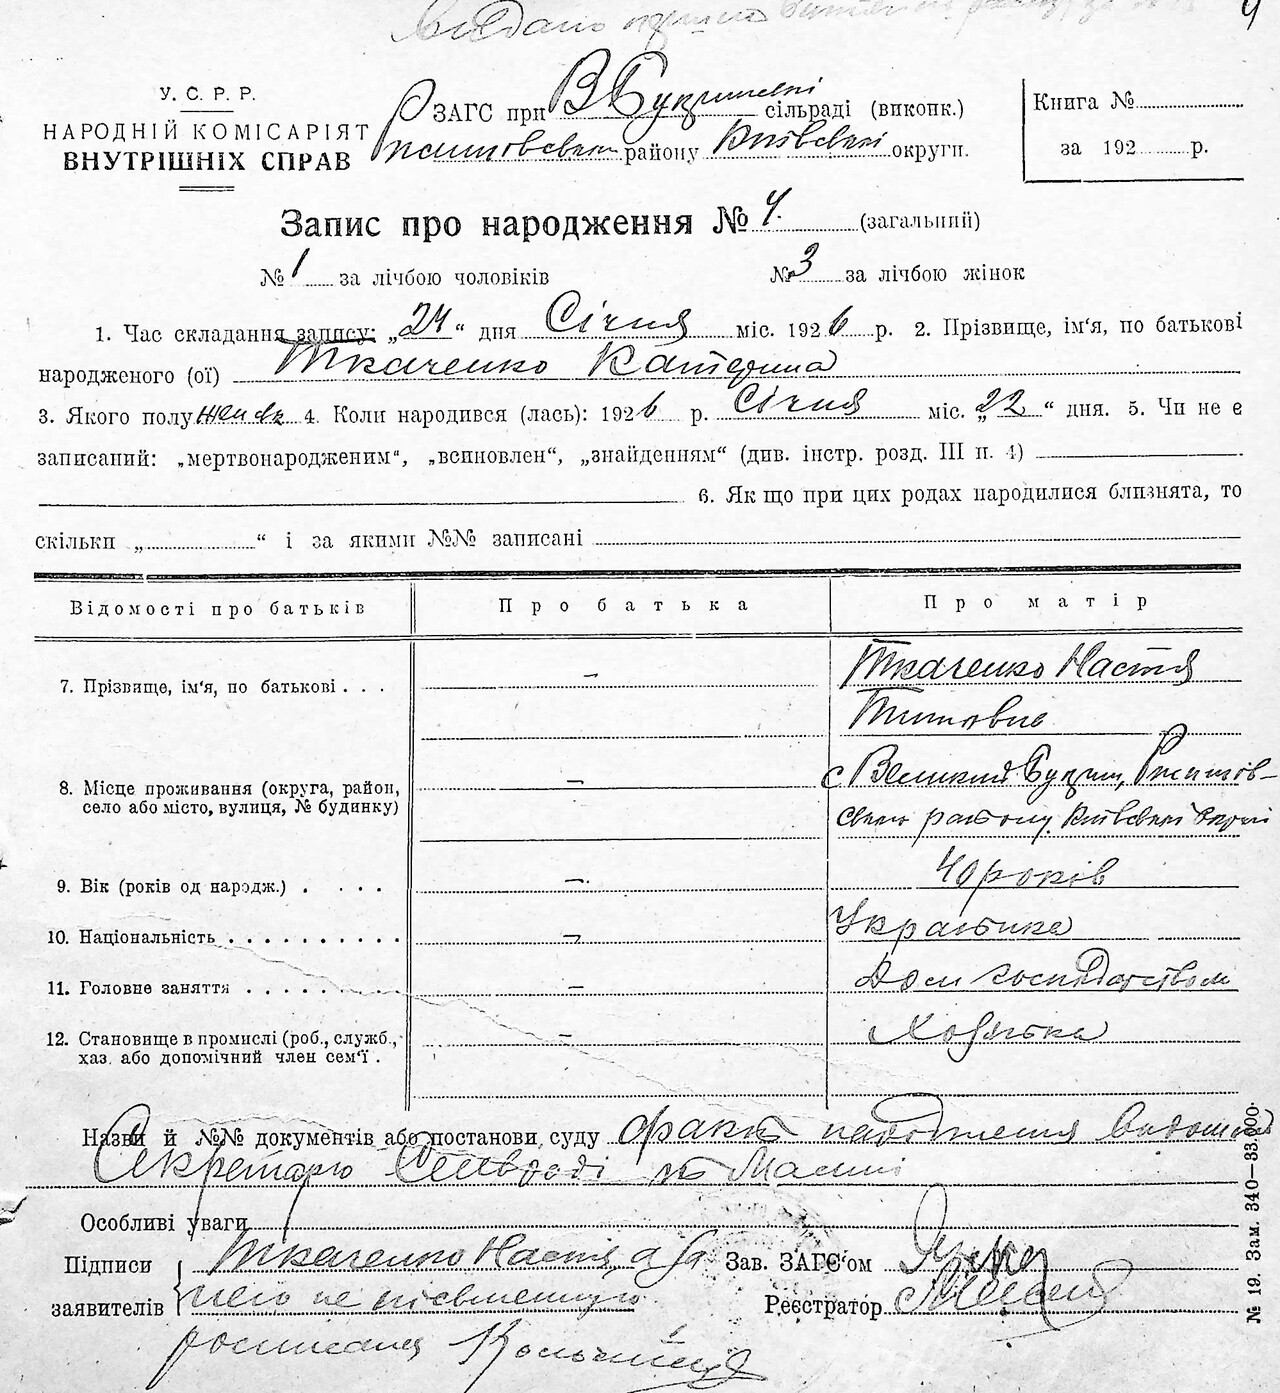 Видано
4
У. С. Р. Р.
НАРОДНІЙ КОМІСАРІЯТ
ВНУТРІШНІХ СПРАВ
ЗАГС при В Букринській сільраді (виконк.)
району Київської округи.
Книга №
за 192 р.
Запис про народження № 4. (загальний)
№ 1 за лічбою чоловіків № 3 за лічбою жінок
1. Час складання запису: „24“ дня Січня міс. 1926 р. 2. Прізвище, ім‘я, по батькові
народженого (ої) Ткаченко Катерина
3. Якого полу женск 4. Коли народився (лась): 1926 р. Січня міс. „22“ дня. 5. Чи не є
записаний: „мертвонародженим“, „всиновлен“, „знайденням“ (див. інстр. розд. III п. 4)
6. Як що при цих родах народилися близнята, то
скільки „ “ і за якими №№ записані
Відомості про батьків Про батька Про матір
7. Прізвище, ім‘я, по батькові . . . – Ткаченко Настя
Титовна
8. Місце проживання (округа, район, – с Великий Букрин, Ржищів-
село або місто, вулиця, № будинку) ського району Київської округи
9. Вік (років од народж.) . . . . – 40 років
10. Національність . . . . . . . . . . – Українка
11. Головне заняття . . . . . . . . . – Дом господарством
12. Становище в промислі (роб., служб., – Хозяйка
хаз. або допомічний член сем‘ї .
Назви й №№ документів або постанови суду факт народження
Секретарю Сільради
Особливі уваги
Підписи Ткаченко Настя, а за
заявителів неписьменную
росписался
Зав. ЗАГС‘ом
Реєстратор
№ 19. Зам. 340—33.000.